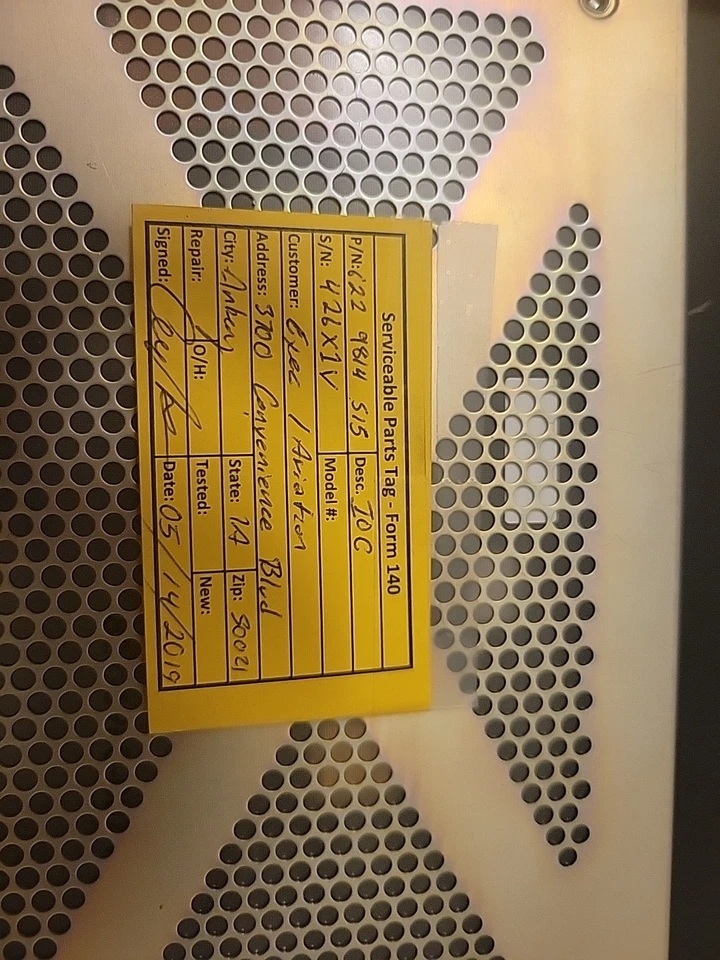 Serviceable Parts Tag - Form 140
P/N: 622 9814 515 Desc. IOC
S/N: 426X1V Model #:
Customer: Exec 1 Aviation
Address: 3700 Convenience Blvd
City: Ankeny State: IA Zip: 50021
Repair: O/H: Tested: New:
Signed: Date: 05/14/2019